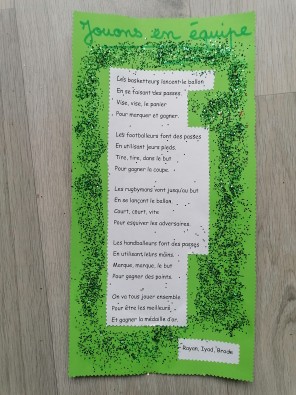 Jouons en équipe
Les basketteurs lancent le ballon
En se faisant des passes.
Vise, vise, le panier
Pour marquer et gagner.
Les footballeurs font des passes
En utilisant leurs pieds.
Tire, tire, dans le but
Pour gagner la coupe.
Les rugbymans vont jusqu'au but
En se lançant le ballon.
Court, court, vite
Pour esquiver les adversaires.
Les handballeurs font des passes
En utilisant leurs mains.
Marque, marque, le but
Pour gagner des points.
On va tous jouer ensemble
Pour être les meilleurs
Et gagner la médaille d'or.
Rayan, Iyad,